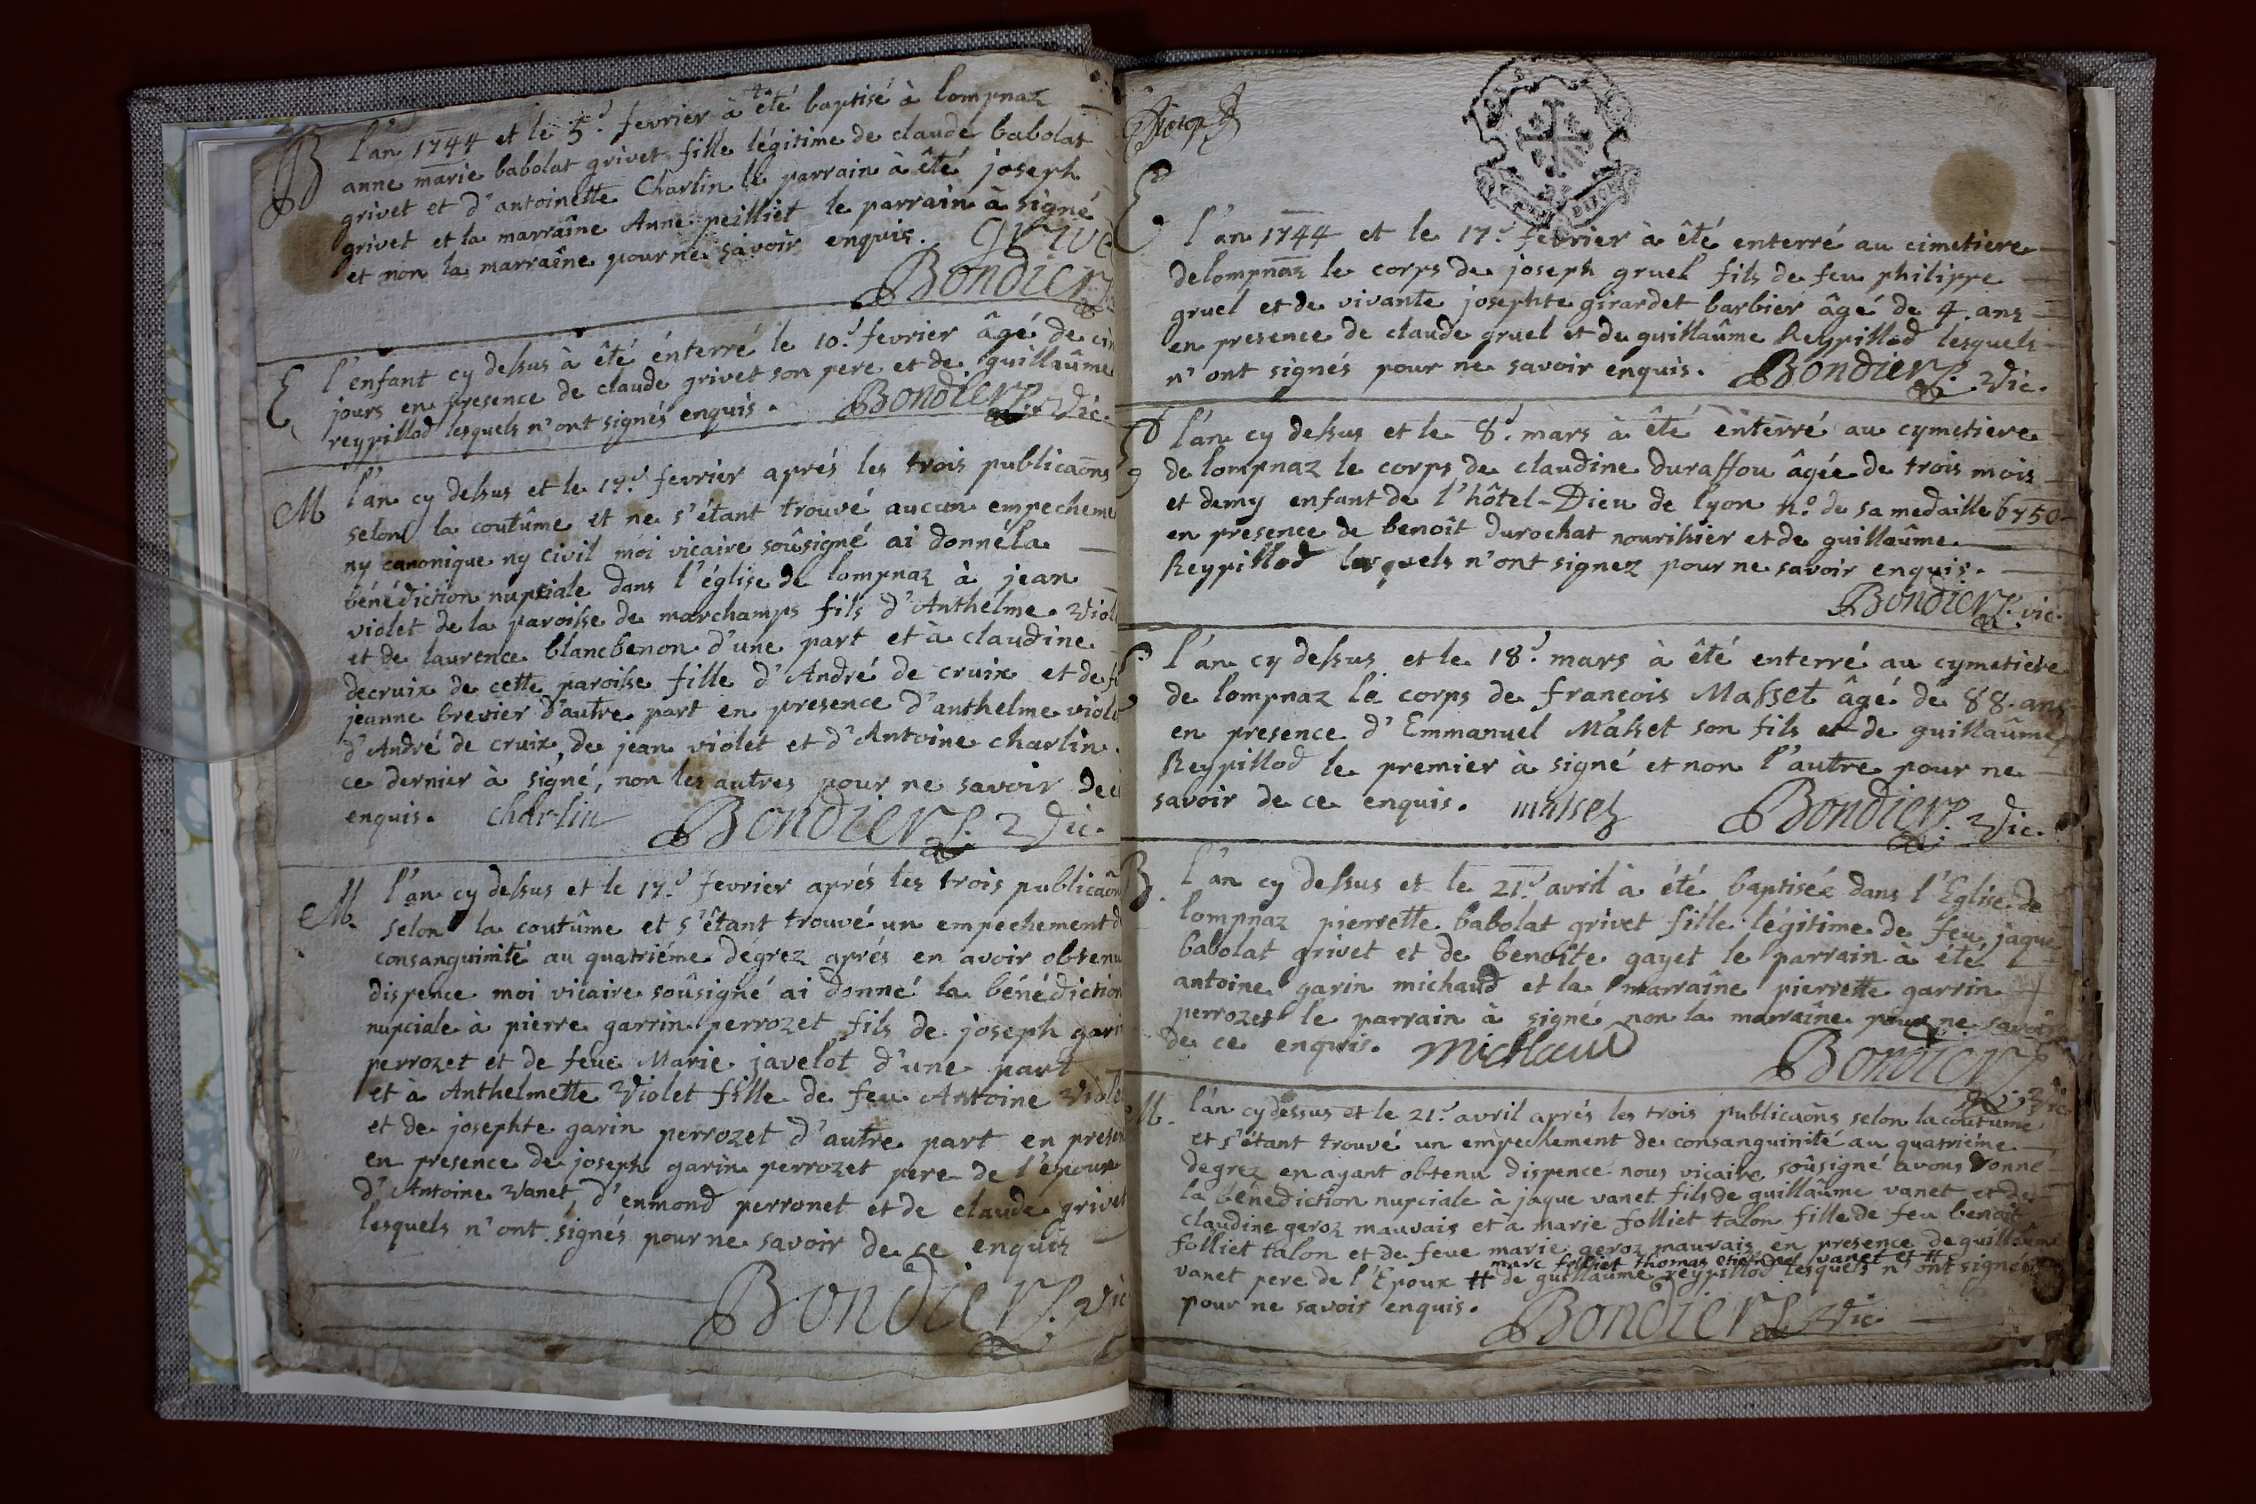 B l'an 1744 et le 5.e fevrier à été baptisé à lompnaz
anne marie babolat grivet fille légitime de claude babolat
grivet et d'antoinette Charlin le parrain à êté joseph
grivet et la marraîne Anne peilliet le parrain à signé
et non la marraîne pour ne savoir enquis. grive
Bondier
E l'enfant cy dessus à êté énterré le 10.e fevrier âgé de cin
jours en presence de claude grivet son pere et de guillaûme
reypillod lesquels n'ont signés enquis. Bondier p. Vic.
M l'an cy dessus et le 17.e fevrier aprés les trois publicaōns
selon la coutûme et ne s'étant trouvé aucun empecheme
ny canonique ny civil moi vicaire soûsigné ai donné la
bénédiction nupciale dans l'église de lompnaz à jean
violet de la paroisse de marchamps fils d'Anthelme Viol
et de laurence blancbenon d'une part et à claudine
decruix de cette paroisse fille d'André de cruix et de f
jeanne brevier d'autre part en presence d'anthelme viole
d'André de cruix, de jean violet et d'Antoine charlin
ce dernier à signé, non les autres pour ne savoir de c
enquis. Charlin Bondier p. Vic.
M. l'an cy dessus et le 17.e fevrier aprés les trois publicaōn
selon la coutûme et s'étant trouvé un empechement d
consanguinité au quatriéme dégrez aprés en avoir obtenu
dispence moi vicaire soûsigné ai donné la bénédiction
nupciale à pierre garrin perrozet fils de joseph garin
perrozet et de feue Marie javelot d'une part
et à Anthelmette Violet fille de feu Antoine Viole
et de josephte garin perrozet d'autre part en presen
en presence de joseph garin perrozet pere de l'epoux
d'Antoine Vanet, d'enmond perronet et de claude grivet
lesquels n'ont signés pour ne savoir de ce enquis
Bondier p. Vic
E l'an 1744 et le 17.e fevrier à êté enterré au cimetiere
de lompnaz le corps de joseph gruel fils de feu philippe
gruel et de vivante josephte girardet barbier âgé de 4. ans
en presence de claude gruel et de guillaûme Reypillod lesquels
n'ont signés pour ne savoir enquis. Bondier p. Vic.
E l'an cy dessus et le 8.e mars à êté énterré au cymetiere
de lompnaz le corps de claudine duraffou âgée de trois mois
et demy enfant de l'hôtel-Dieu de lyon n.o de sa medaille 6750
en presence de benoît durochat nourissier et de guillaûme
Reypillod lesquels n'ont signez pour ne savoir enquis.
Bondier p. vic.
E l'an cy dessus et le 18.e mars à êté enterré au cymetiere
de lompnaz le corps de francois Masset âgé de 88. ans
en presence d'Emmanuel Masset son fils et de guillaûme
Reypillod le premier à signé et non l'autre pour ne
savoir de ce enquis. masset Bondier p. Vic.
B. l'an cy dessus et le 21.e avril à été baptisée dans l'Eglise de
lompnaz pierrette babolat grivet fille légitime de feu jaque
babolat grivet et de benoîte gayet le parrain à été
antoine garin michaud et la marraîne pierrette garrin
perrozet le parrain à signé non la marraîne pour ne savoir
de ce enquis. michaud Bondier p.
Vic
M. l'an cy dessus et le 21.e avril aprés les trois publicaōns selon la coutume
et s'étant trouvé un empechement de consanguinité au quatriéme
degrez en ayant obtenu dispence nous vicaire soûsigné avons donné
la bénediction nupciale à jaque vanet fils de guillaûme vanet et de
claudine geroz mauvais et à marie folliet talon fille de feu benoit
folliet talon et de feue marie geroz mauvais en presence de guillaume
marc folliet thomas etienne vanet et #
vanet pere de l'Epoux # de guillaume reypillod lesquels n'ont signé
pour ne savoir enquis. Bondier p. Vic